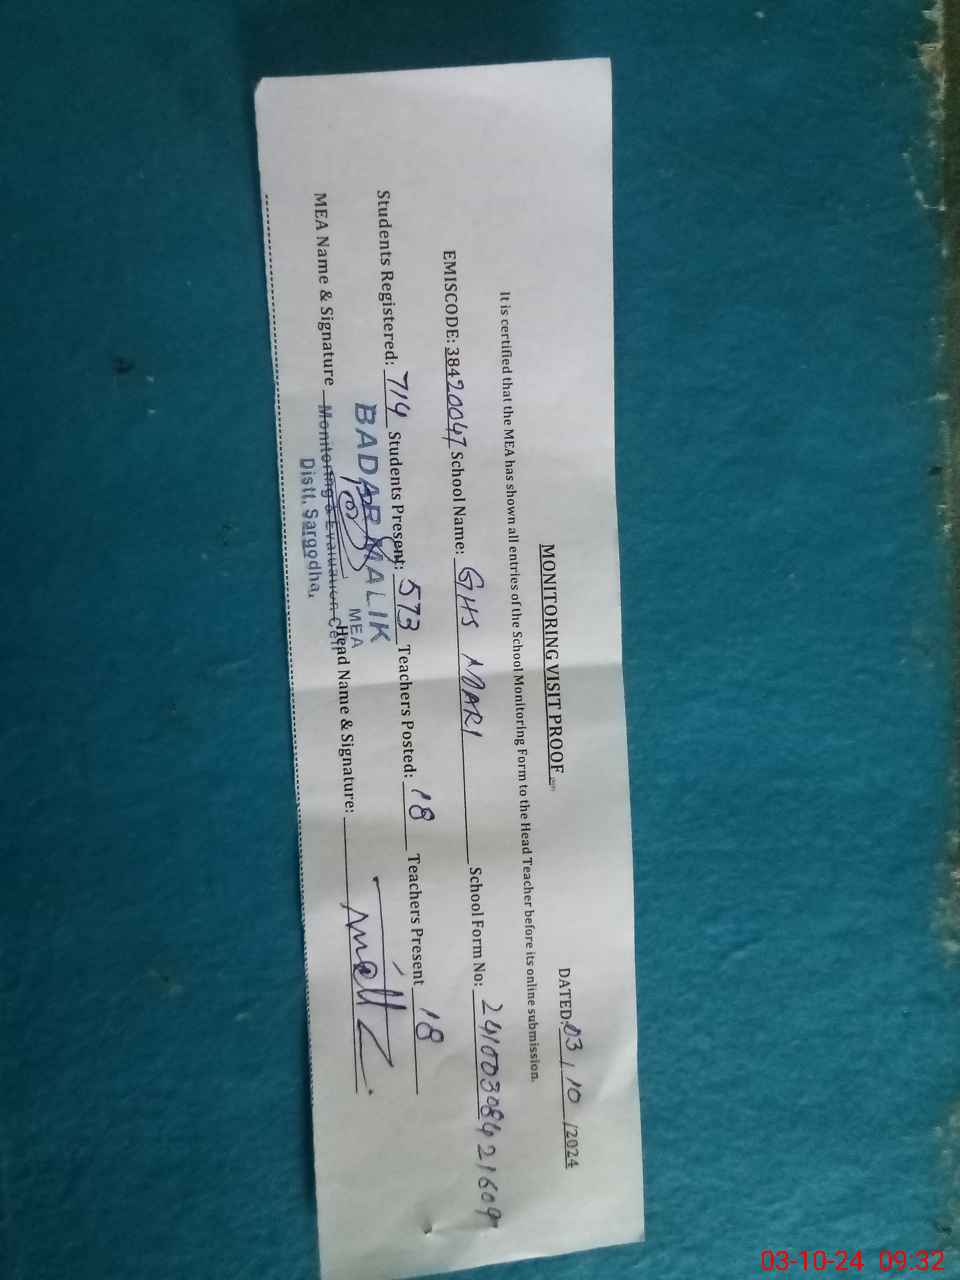 MONITORING VISIT PROOF
DATED: 03 / 10 /2024
It is certified that the MEA has shown all entries of the School Monitoring Form to the Head Teacher before its online submission.
EMISCODE: 38420047 School Name: GHS MARI School Form No: 24100308421609
Students Registered: 714 Students Present: 573 Teachers Posted: 18 Teachers Present 18
BADAR MALIK
MEA
MEA Name & Signature Monitoring & Evaluation Cell Head Name & Signature:
Distt. Sargodha.
03-10-24 09:32